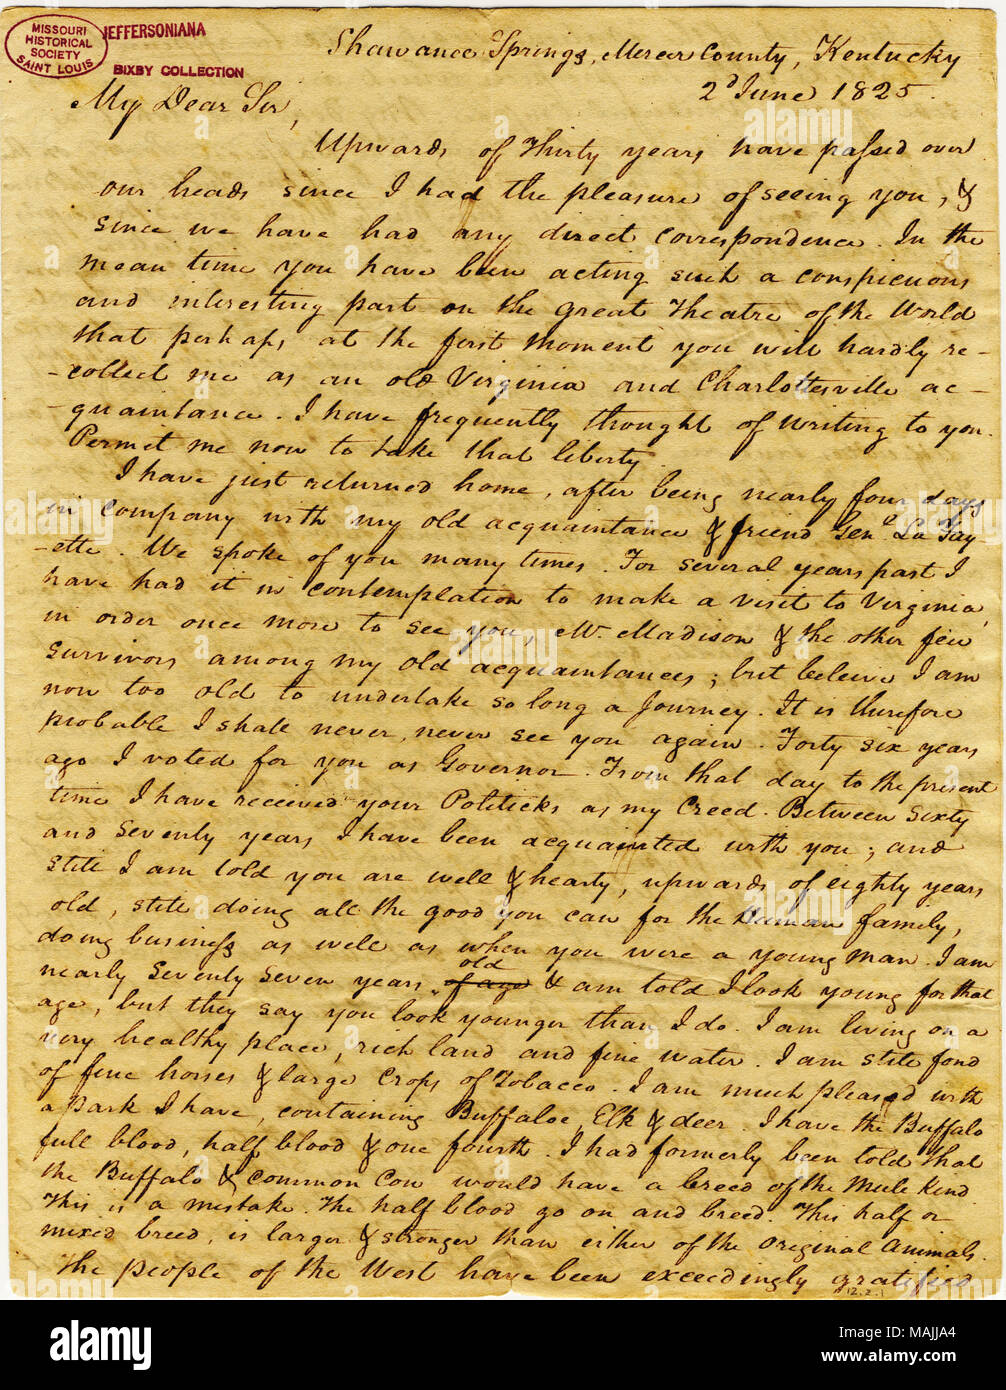 MISSOURI
HISTORICAL
SOCIETY
SAINT LOUIS
JEFFERSONIANA
BIXBY COLLECTION
Shawanee Springs, Mercer County, Kentucky
2d June 1825.
My Dear Sir,
Upwards of Thirty years have passed over
our heads since I had the pleasure of seeing you, &
since we have had any direct correspondence. In the
mean time you have been acting such a conspicuous
and interesting part on the Great Theatre of the World
that perhaps, at the first moment you will hardly re-
-collect me as an old Virginia and Charlottesville ac-
-quaintance. I have frequently thought of writing to you.
Permit me now to take that liberty.
I have just returned home, after being nearly four days
in company with my old acquaintance & friend Genl La Fay
-ette. We spoke of you many times. For several years past I
have had it in contemplation to make a visit to Virginia,
in order once more to see you, Mr. Madison & the other few
survivors among my old acquaintances; but beleive I am
now too old to undertake so long a Journey. It is therefore
probable I shall never, never see you again. Forty six years
ago I voted for you as Governor. From that day to the present
time I have received your Politicks as my Creed. Between Sixty
and Seventy years I have been acquainted with you; and
still I am told you are well & hearty, upwards of eighty years
old, still doing all the good you can for the Human family,
doing business as well as when you were a young man. I am
nearly Seventy Seven years old of age & am told I look young for that
age, but they say you look younger than I do. I am living on a
very healthy place, rich land and fine water. I am still fond
of fine horses & large Crops of Tobacco. I am much pleased with
a Park I have, containing Buffaloe, Elk & deer. I have the Buffalo
full blood, half blood & one fourth. I had formerly been told that
the Buffalo & common Cow would have a breed of the Mule kind.
This is a mistake. The half blood go on and breed. This half or
mixed breed, is larger & stronger than either of the original animals.
The people of the West have been exceedingly gratified
12.2.1
alamy
MAJJA4
www.alamy.com